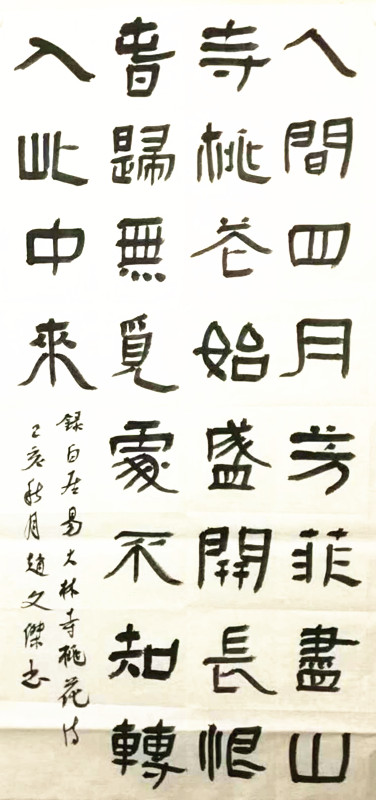 人間四月芳菲盡山
寺桃花始盛開長恨
春歸無覓處不知轉
入此中來
録白居易大林寺桃花诗
己亥秋月趙文傑书